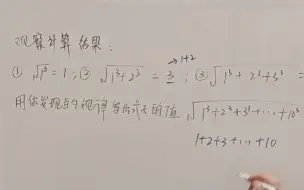 观察计算结果:
→ 1+2
① √1³ = 1; ② √1³+2³ = 3; ③ √1³+2³+3³ =
用你发现的规律写出式子的值 √1³+2³+3³+…+10³
1+2+3+…+10